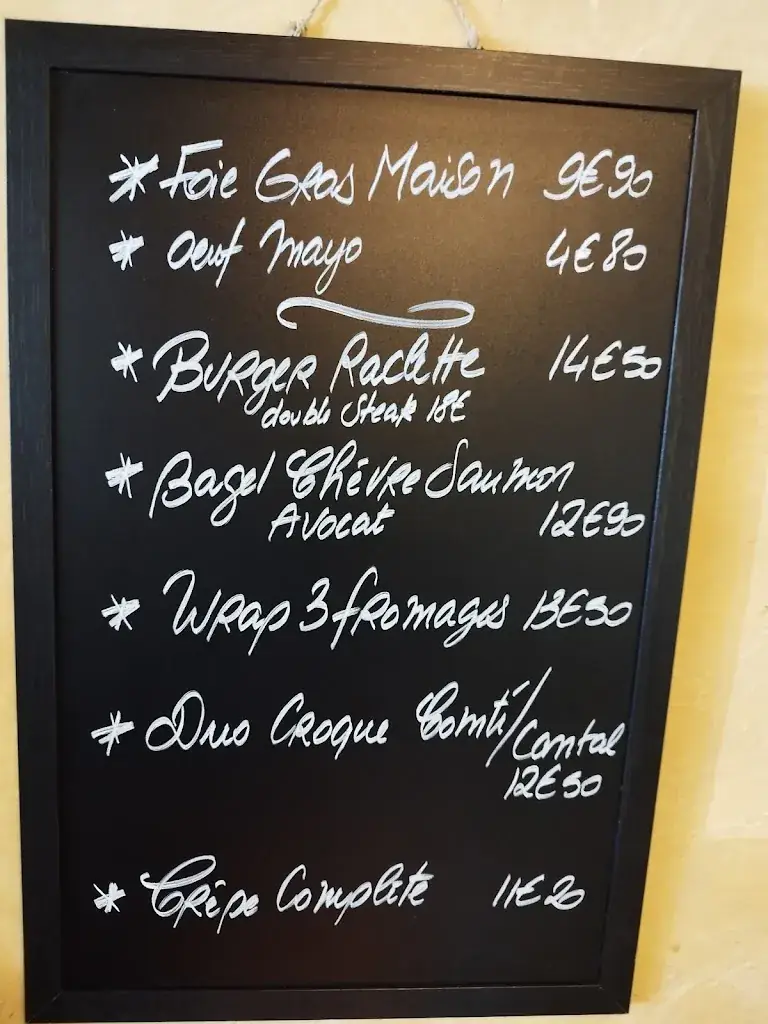 * Foie Gras Maison 9€90
* Oeuf Mayo 4€80
* Burger Raclette 14€50
double Steak 18€
* Bagel Chèvre Saumon
Avocat 12€90
* Wrap 3 fromages 13€50
* Duo Croque Comté/Cantal
12€50
* Crêpe Complète 11€20